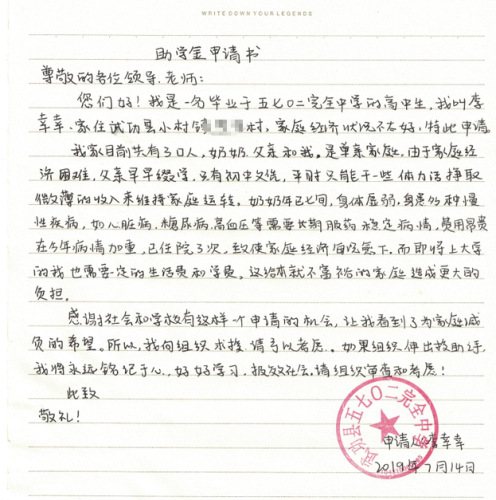 WRITE DOWN YOUR LEGENDS
助学金申请书
尊敬的各位领导.老师:
您们好!我是一名毕业于五七〇二完全中学的高中生,我叫李
幸幸.家住武功县小村镇村,家庭经济状况不太好,特此申请
我家目前共有3口人,奶奶.父亲和我。是单亲家庭,由于家庭经
济困难,父亲早早辍学,只有初中文凭,平时只能干一些体力活挣取
微薄的收入来维持家庭运转。奶奶年已七旬,身体虚弱,身患多种慢
性疾病,如心脏病.糖尿病.高血压等需要长期服药稳定病情,费用昂贵
在今年病情加重,已住院3次,致使家庭经济每况愈下.而即将上大学
的我也需要一定的生活费和学费。这给本就不富裕的家庭造成更大的
负担。
感谢社会和学校有这样一个申请的机会,让我看到了为家庭减
负的希望。所以,我向组织求援,请予以考虑。如果组织伸出救助之手
我将永远铭记于心,好好学习,报效社会.请组织审查和考虑!
此致
敬礼!
武功县五七〇二完全中学
申请人:李幸幸
2019年7月14日